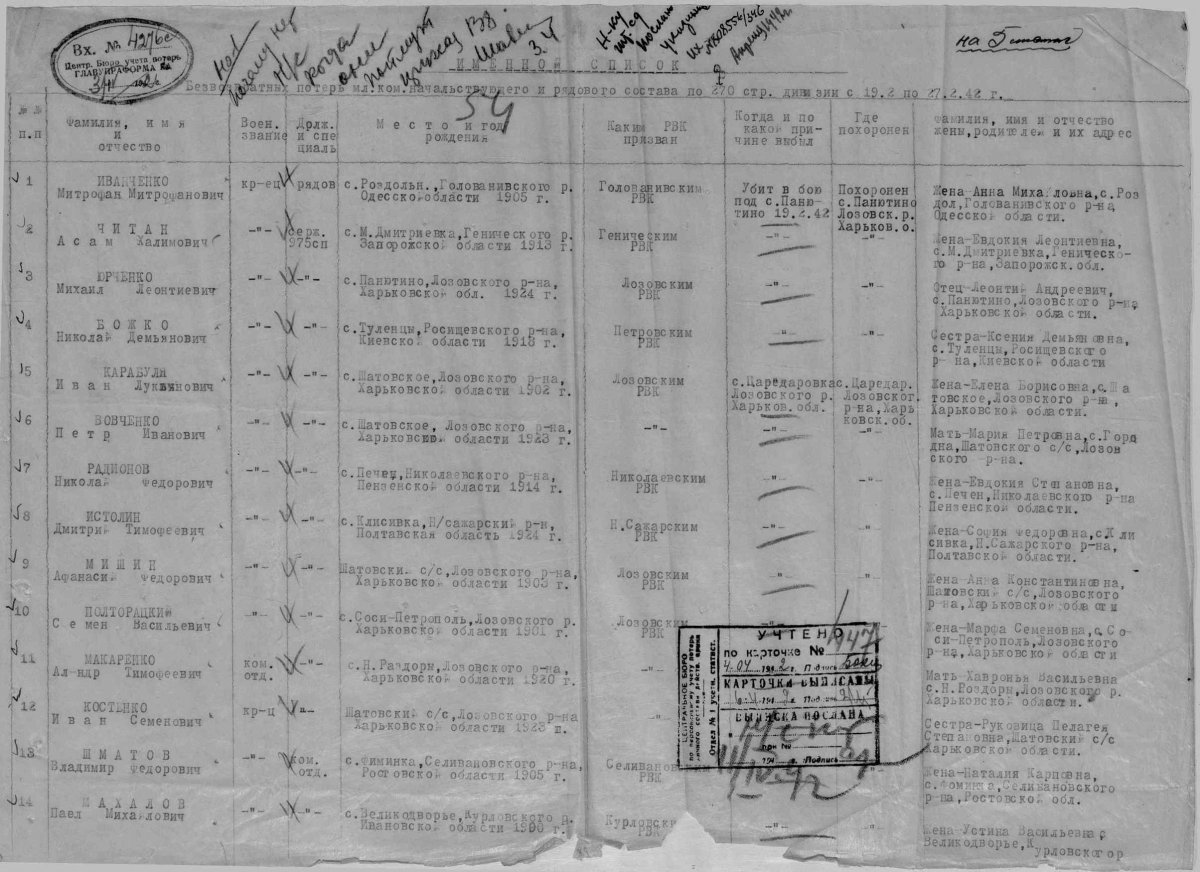 Вх. № 4276с
Центр. Бюро учета потерь
ГЛАВУПРАФОРМА КА
на 5 листах
ИМЕННОЙ СПИСОК
Безвозвратных потерь мл.ком.начальствующего и рядового состава по 270 стр. дивизии с 19.2 по 27.2.42 г.
54
№ № п.п
Фамилия, имя и отчество
Воен. звание
Должн. и специальн
Место и год рождения
Каким РВК призван
Когда и по какой причине выбыл
Где похоронен
Фамилия, имя и отчество жены, родителей и их адрес
1 ИВАНЧЕНКО кр-ец рядов с.Роздольн.,Голованивского р. Голованивским Убит в бою Похоронен Жена-Анна Михайловна,с.Роз
Митрофан Митрофанович Одесской области 1905 г. РВК под с.Паню- с.Панютино дол,Голованивского р-на,
тино 19.2.42 Лозовск.р. Одесской области.
Харьков.о.
2 ЧИТАН -"- серж. с.М.Дмитриевка,Генического р. Геническим -"- -"- Жена-Евдокия Леонтиевна,
Асам Халимович 975сп Запорожской области 1913 г. РВК с.М.Дмитриевка,Геническо-
го р-на,Запорожск.обл.
3 ЮРЧЕНКО -"- -"- с.Панютино,Лозовского р-на, Лозовским -"- -"- Отец-Леонтий Андреевич,
Михаил Леонтиевич Харьковской обл. 1924 г. РВК с.Панютино,Лозовского р-на
Харьковской области.
4 БОЖКО -"- -"- с.Туленцы,Росищевского р-на, Петровским -"- -"- Сестра-Ксения Демьяновна,
Николай Демьянович Киевской области 1918 г. РВК с.Туленцы,Росищевского
р-на,Киевской области
5 КАРАБУЛЯ -"- -"- с.Шатовское,Лозовского р-на, Лозовским с.Царедаровка с.Царедар. Жена-Елена Борисовна,с.Ша
Иван Лукьянович Харьковской области 1902 г. РВК Лозовского р. Лозовског. товское,Лозовского р-на,
Харьков.обл. р-на,Харь Харьковской области.
ковск.об.
6 ВОВЧЕНКО -"- -"- с.Шатовское, Лозовского р-на, -"- -"- -"- Мать-Мария Петровна,с.Горо
Петр Иванович Харьковской области 1923 г. дна,Шатовского с/с,Лозов
ского р-на.
7 РАДИОНОВ -"- -"- с.Печец,Николаевского р-на, Николаевским -"- -"- Жена-Евдокия Степановна,
Николай Федорович Пензенской области 1914 г. РВК с.Печен,Николаевского р-на
Пензенской области.
8 ИСТОЛИН -"- -"- с.Клисивка,Н/сажарский р-н, Н.Сажарским -"- -"- Жена-София Федоровна,с.Кли
Дмитрий Тимофеевич Полтавская область 1924 г. РВК сивка,Н.Сажарского р-на,
Полтавской области.
9 МИШИН -"- -"- Шатовский с/с,Лозовского р-на, Лозовским -"- -"- Жена-Анна Константиновна,
Афанасий Федорович Харьковской области 1903 г. РВК Шатовский с/с,Лозовского
р-на,Харьковской области
10 ПОЛТОРАЦКИЙ -"- -"- с.Соси-Петрополь,Лозовского р. Лозовским Жена-Марфа Семеновна,с.Со
Семен Васильевич Харьковской области 1901 г. РВК си-Петрополь,Лозовского
р-на,Харьковской области
11 МАКАРЕНКО ком. -"- с.Н.Раздоры,Лозовского р-на, -"- Мать Хавронья Васильевна
Ал-ндр Тимофеевич отд. Харьковской области 1920 г. с.Н.Роздорн,Лозовского р.
Харьковской области.
12 КОСТЕНКО кр-ц -"- Шатовский с/с,Лозовского р-на -"- Сестра-Руковица Пелагея
Иван Семенович Харьковской области 1923 г. Степановна,Шатовский с/с
Харьковской области.
13 ШМАТОВ -"- ком. с.Фиминка,Селивановского р-на, Селивановским -"- Жена-Наталия Карповна,
Владимир Федорович отд. Ростовской области 1905 г. РВК с.Фоминка,Селивановского
р-на,Ростовской обл.
14 МАХАЛОВ -"- -"- с.Великодворье,Курловского р. Курловским -"- -"- Жена-Устина Васильевна,с
Павел Михайлович Ивановской области 1900 г. РВК Великодворье,Курловского р
УЧТЕНО
по карточке № 1947
4-04 1942 г. Подпись
КАРТОЧКИ ВЫПИСАНЫ
194 г. Подпись
ВЫПИСКА ПОСЛАНА
при №
194 г. Подпись
ЦЕНТРАЛЬНОЕ БЮРО
по персональному учету потерь
личного состава действ. армии
Отдел № 1 учетн. статист.
11/IV.42